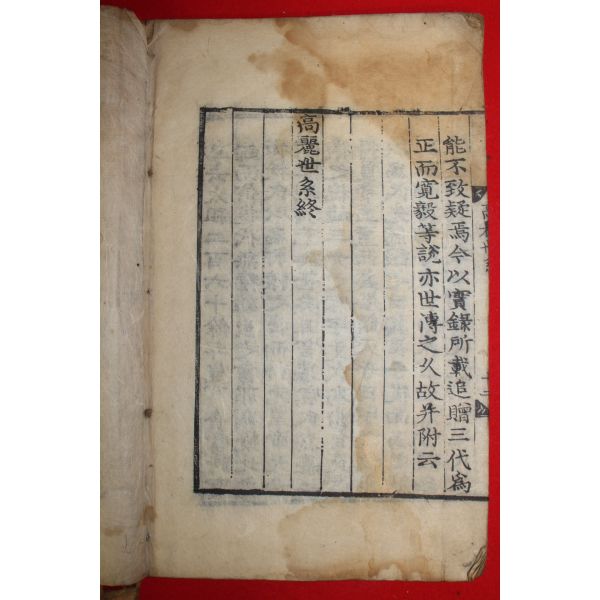 能不致疑焉今以實錄所載追贈三代爲
正而寬毅等說亦世傳之久故并附云
高麗世系終